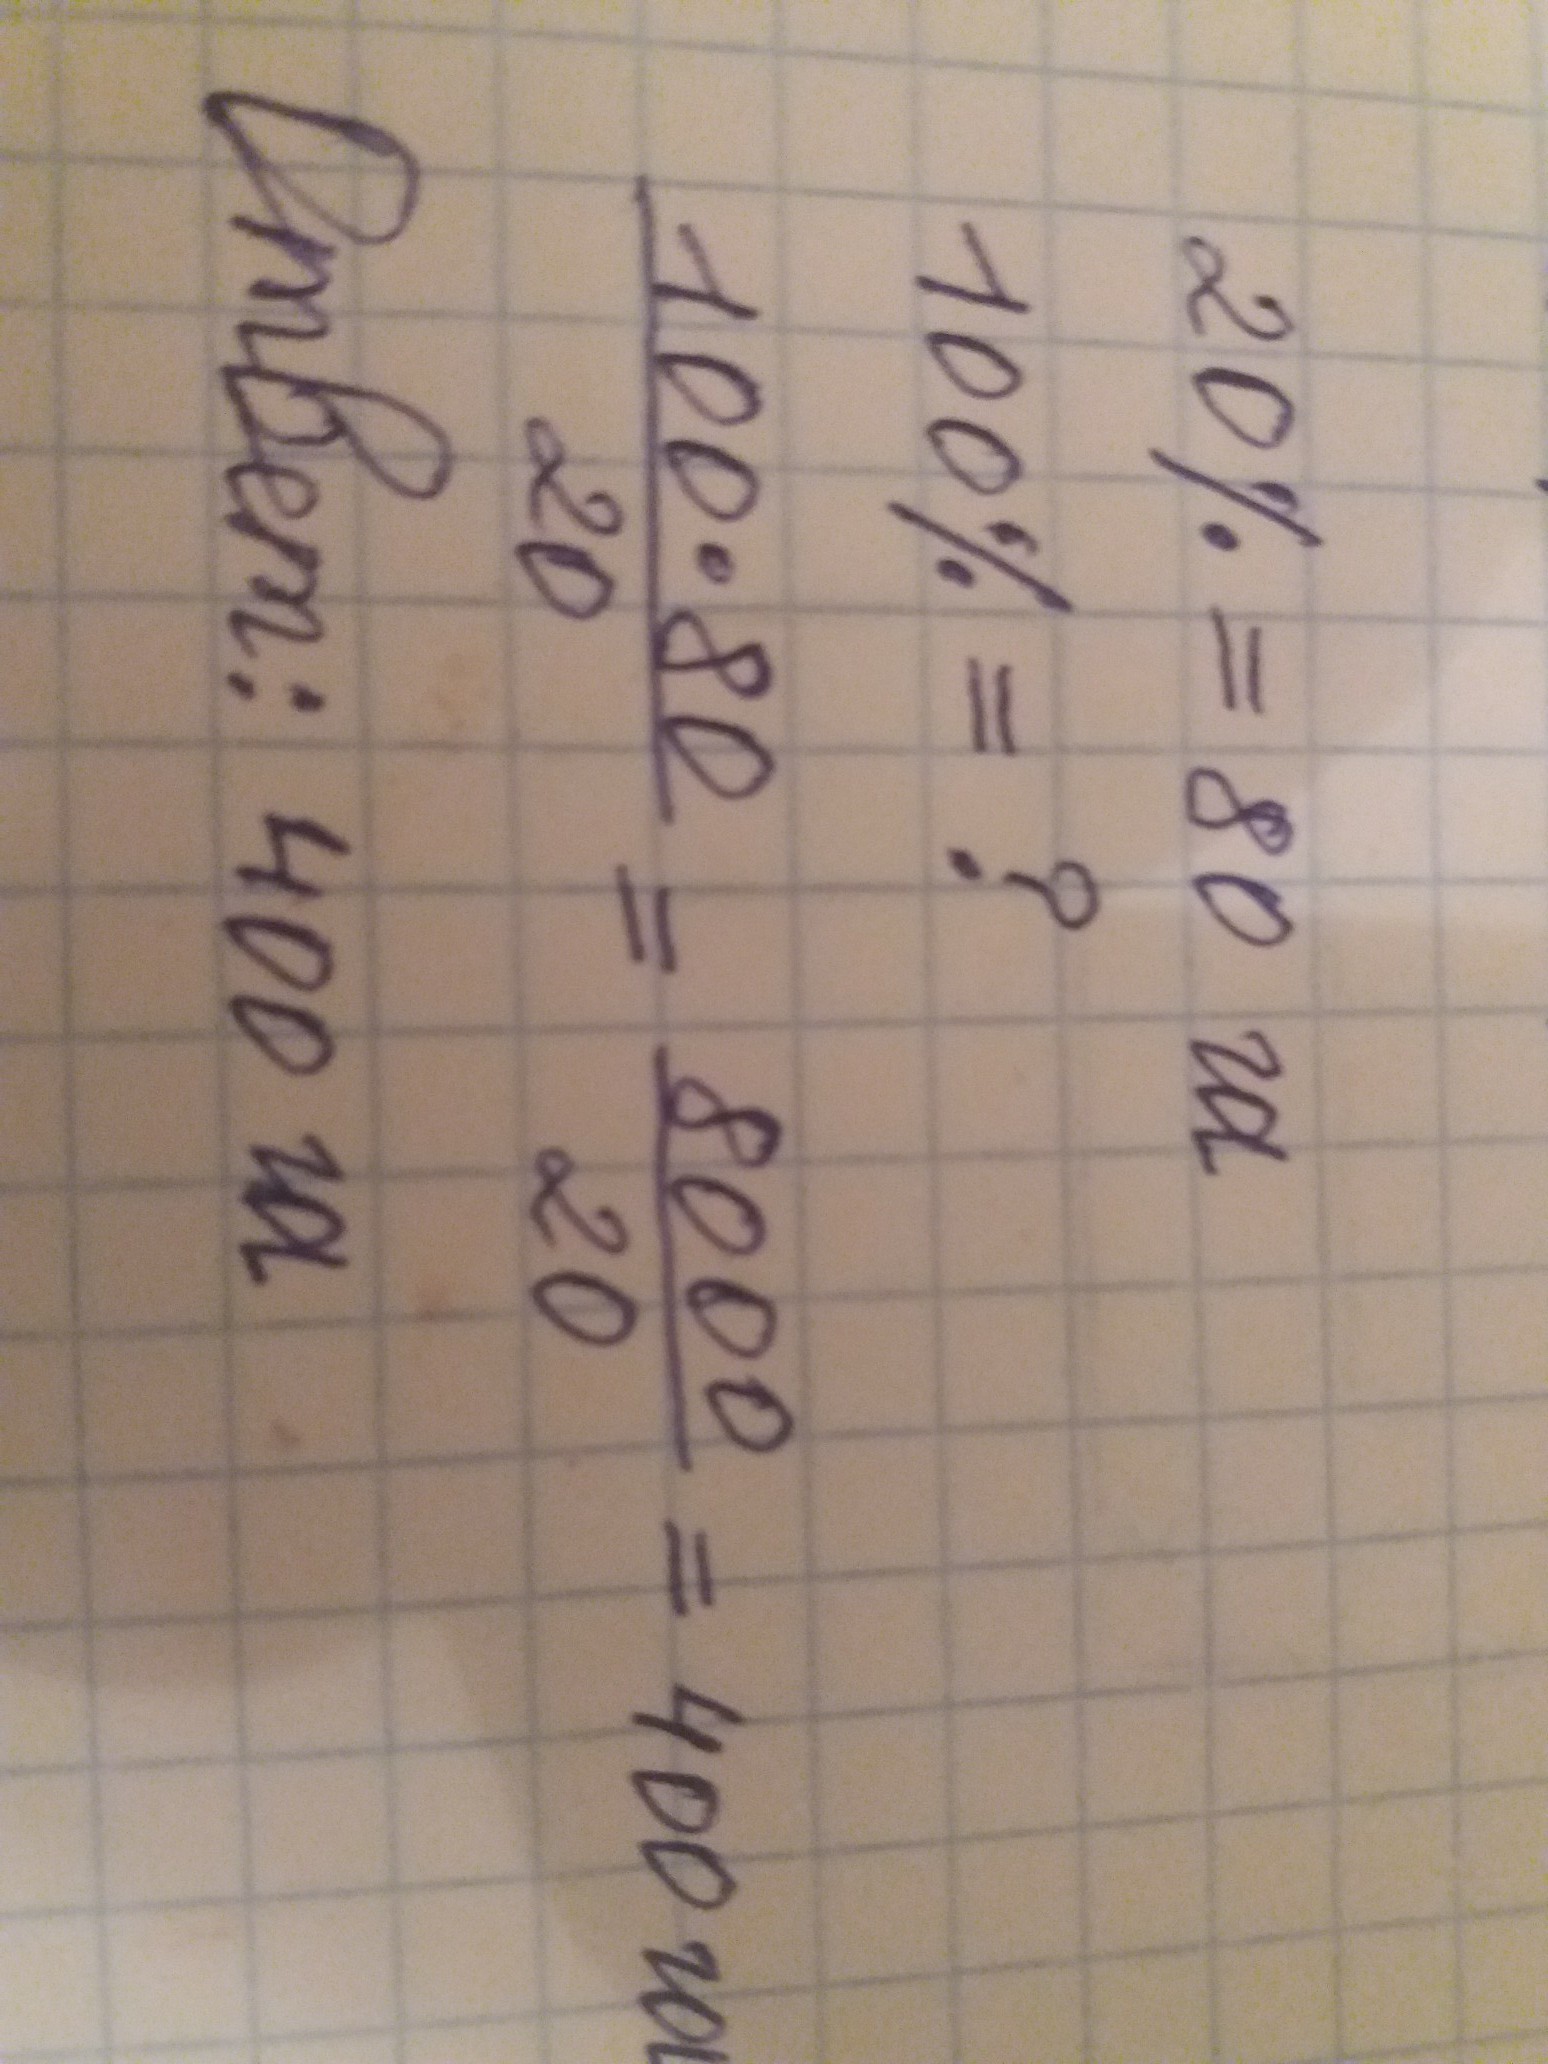 20% = 80 м
100% = ?
100·80/20 = 8000/20 = 400 м
Ответ: 400 м